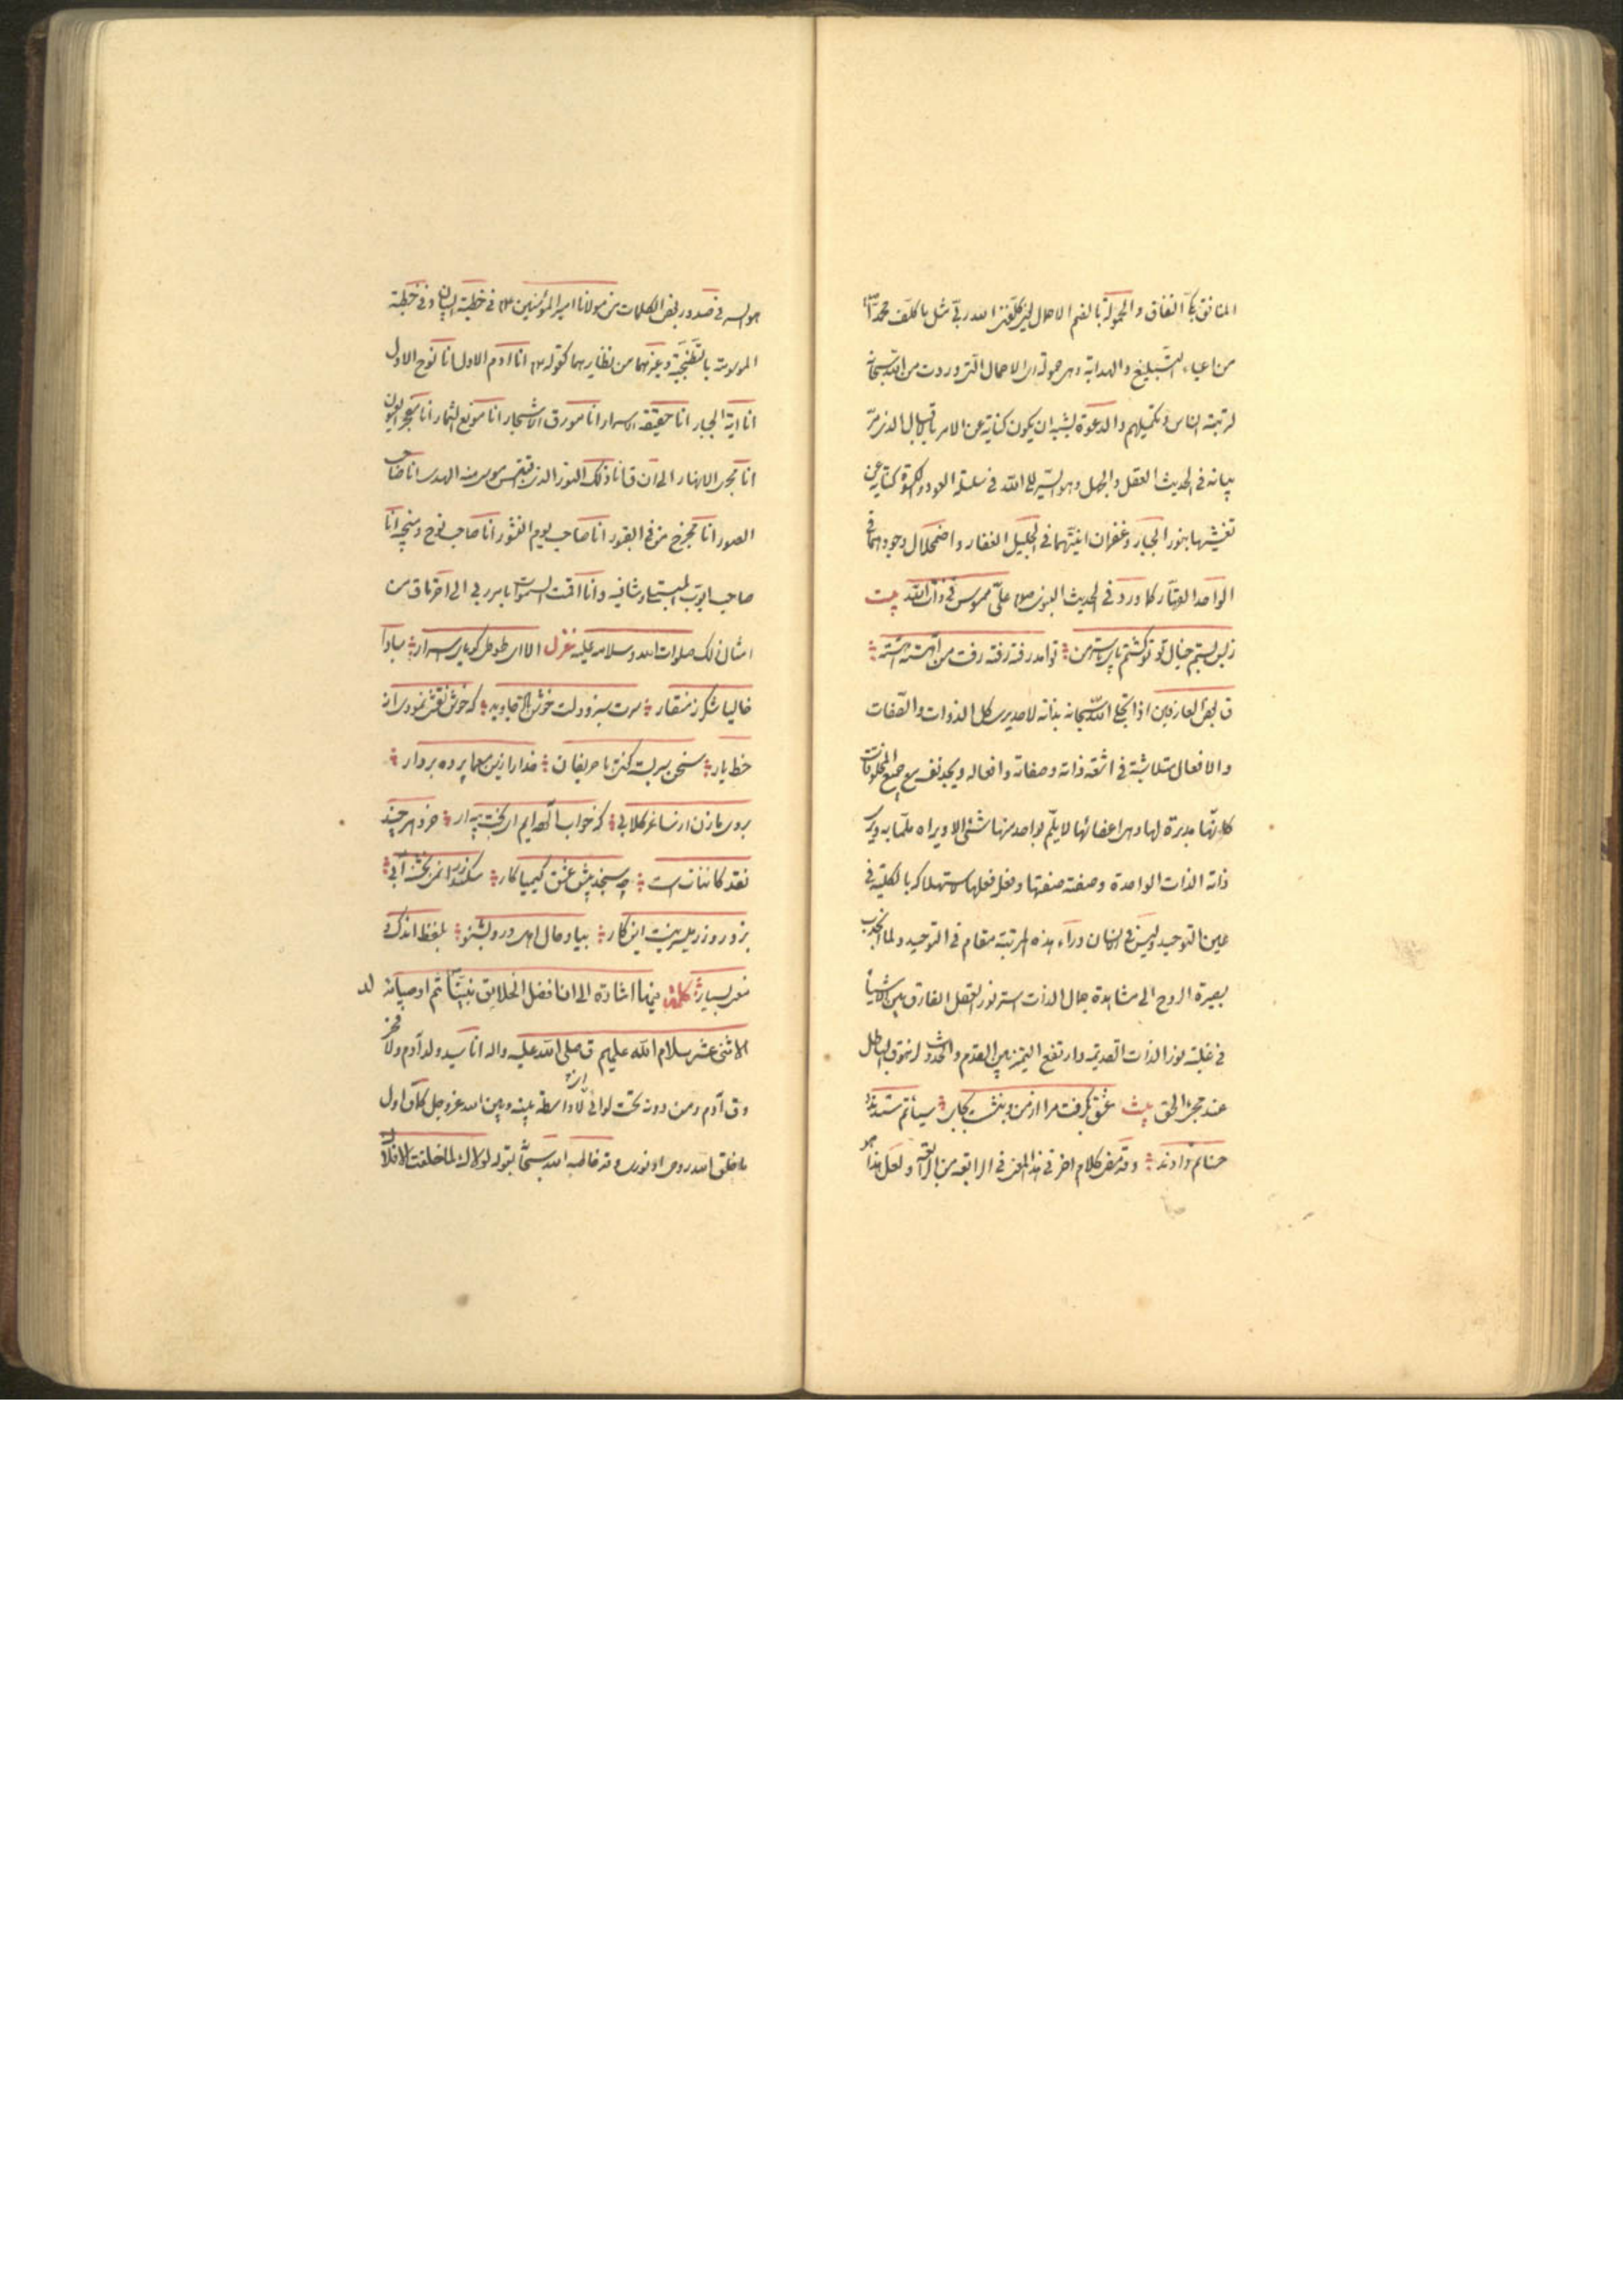 المنافق بكا النفاق والحمولة بالضم الاحمال يعني كلفني الله ربي مثل ما كلف محمدا
من اعباء التبليغ والهداية وهي حمولة اي الاحمال التي وردت من الله سبحانه
لتربية الناس وتكميلهم والدعوة يشبه ان يكون كناية عن الامر بالاقبال الذي مر
بيانه في الحديث العقل والجهل وهو السير الى الله في سلسلة العود والكسوة كناية عن
تغشيهما بنور الجبار وغفران انيتهما في الجليل الغفار واضمحلال وجودهما في
الواحد القهار كما ورد في الحديث النبوي علي ممسوس في ذات الله بيت
ز بس بستم خيال تو تو گشتم پاي تا سر من تو آمد رفته رفته رفت من آهسته آهسته
ق بعض العارفين اذا تجلى الله سبحانه بذاته لاحد يرى كل الذوات والصفات
والافعال متلاشية في اشعة ذاته وصفاته وافعاله ويجد نفسه مع جميع المخلوقات
كانها مدبرة لها وهي اعضائها لا يلم بواحد منها شئ الا ويراه ملما به ويرى
ذاته الذات الواحدة وصفته صفتها وفعله فعلها لاستهلاكه بالكلية في
عين التوحيد وليس للانسان وراء هذه المرتبة مقام في التوحيد ولما انجذب
بصيرة الروح الى مشاهدة جمال الذات استتر نور العقل الفارق بين الاشياء
في غلبة نور الذات القديمة وارتفع التميز بين القدم والحدوث لزهوق الباطل
عند مجئ الحق بيت عشق بگرفت مرا از من وبنشست بجاى سيأتم ستدند و
حسناتم دادند وقد مضى كلام اخر في هذا المعنى في الرابعة من الرابعة ولعل هذا
هو السر في صدور بعض الكلمات من مولانا امير المؤمنين في خطبة البيان وفي خطبة
الموسومة بالتطنجية وغيرهما من نظايرهما كقوله انا ادم الاول انا نوح الاول
انا اية الجبار انا حقيقة الاسرار انا مورق الاشجار انا مونع الثمار انا مفجر العيون
انا مجرى الانهار الى ان ق انا ذلك النور الذي اقتبس موسى منه الهدى انا صاحب
الصور انا مخرج من في القبور انا صاحب يوم النشور انا صاحب نوح ومنجيه انا
صاحب ايوب المبتلى وشافيه وانا اقمت السموات بامر ربي الى اخر ما ق من
امثال ذلك صلوات الله وسلامه عليه غزل الا اى طوطى گوياى اسرار مبادا
خاليت شكر ز منقار سرت سبز و دلت خوش باد جاويد كه خوش نقشى نمودى از
خط يار سخن سر بسته گفتى با حريفان خدا را زين معما پرده بردار
بروى ما زن از ساغر گلابى كه خواب آلوده ايم اى بخت بيدار خرد هر چند
نقد كائنات است چه سنجد پيش عشق كيمياكار سكندر را نمى بخشند آبى
بزور و زر ميسر نيست اين كار بيا و حال اهل درد بشنو بلفظ اندك و
معنى بسيار كلمة فيها اشارة الى ان افضل الخلايق نبينا ثم اوصيائه
الاثنى عشر سلام الله عليهم ق صلى الله عليه واله انا سيد ولد آدم ولا فخر
وق آدم ومن دونه تحت لوائى لانه لا واسطة بينه وبين الله عز وجل كما ق اول
ما خلق الله روحى او نورى وقد خاطبه الله سبحانه بقوله لولاك لما خلقت الافلاك